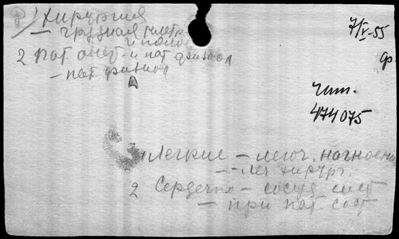 Хирургия
– грудная клетка
и полост
2 Пат. анат. и пат. физиол
– пат. физиол
7/V-55
Чит.
474075
1 Легкие – легоч. нагноен
– лег хирург.
2 Сердечно – сосуд сист
– при пат. сост